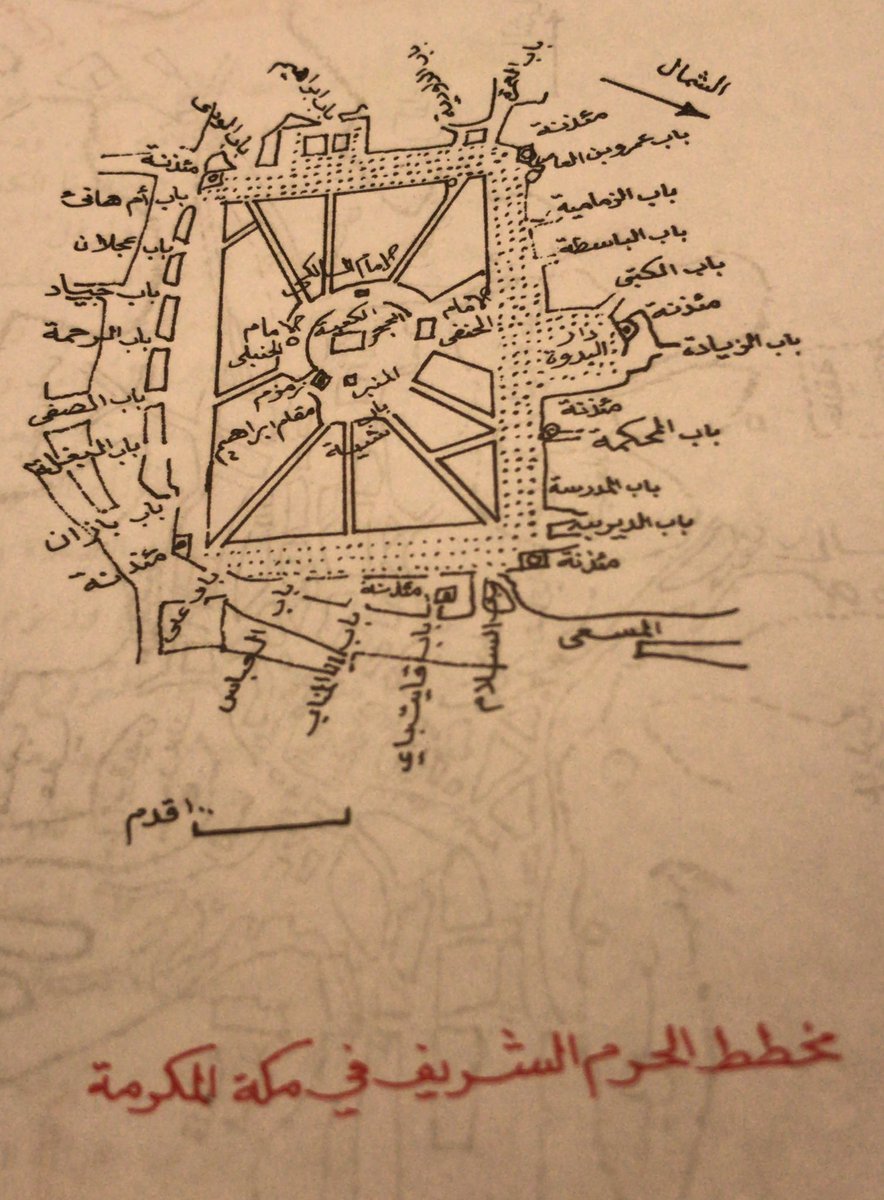 الشمال
باب العمرة
باب الداودية
باب ابراهيم
مئذنة
باب عمرو بن العاص
باب الزمامية
باب الباسطة
باب الكتبى
مئذنة
باب الزيادة
دار
الندوة
مئذنة
باب المحكمة
باب المدرسة
باب الديربية
مئذنة
المسعى
مئذنة
باب أم هانئ
باب عجلان
باب جياد
باب الرحمة
باب الصفى
باب البغلة
باب بازان
مئذنة
مقام الحنفى
مقام الحنبلى
الكعبة
الحجر
زمزم
المنبر
باب
شيبة
مقام ابراهيم
باب علي
باب العباس
باب
مئذنة
باب قايت باي
السلام
١٠٠ قدم
مخطط الحرم الشريف في مكة المكرمة